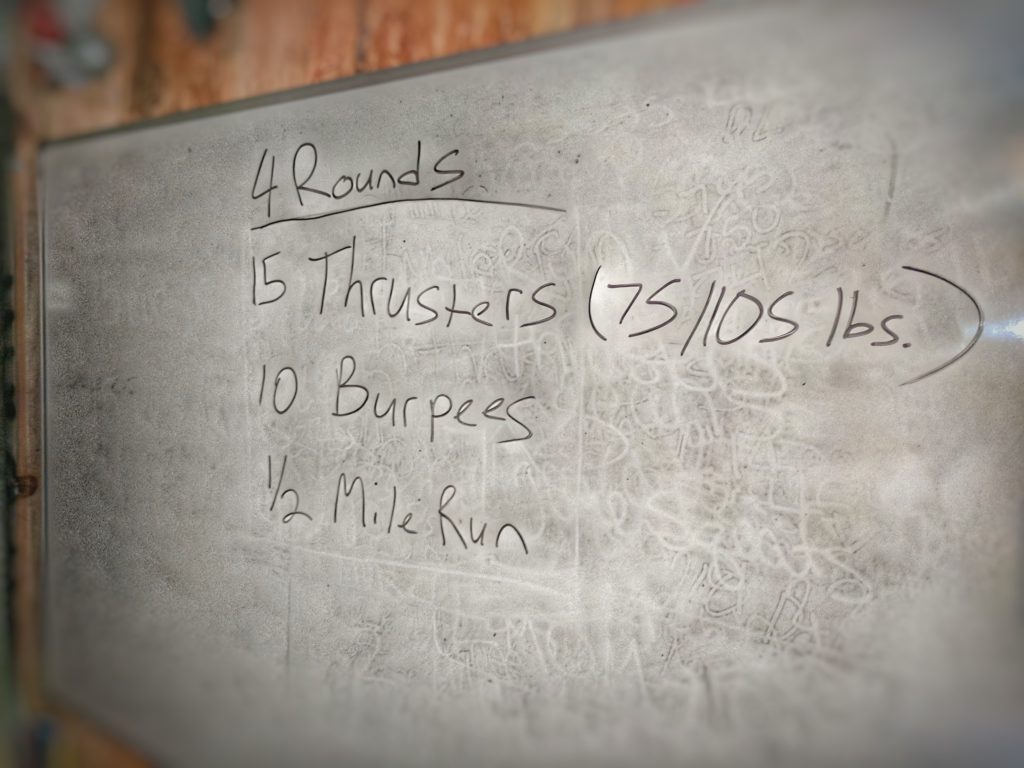 4 Rounds
15 Thrusters (75/105 lbs.)
10 Burpees
1/2 Mile Run